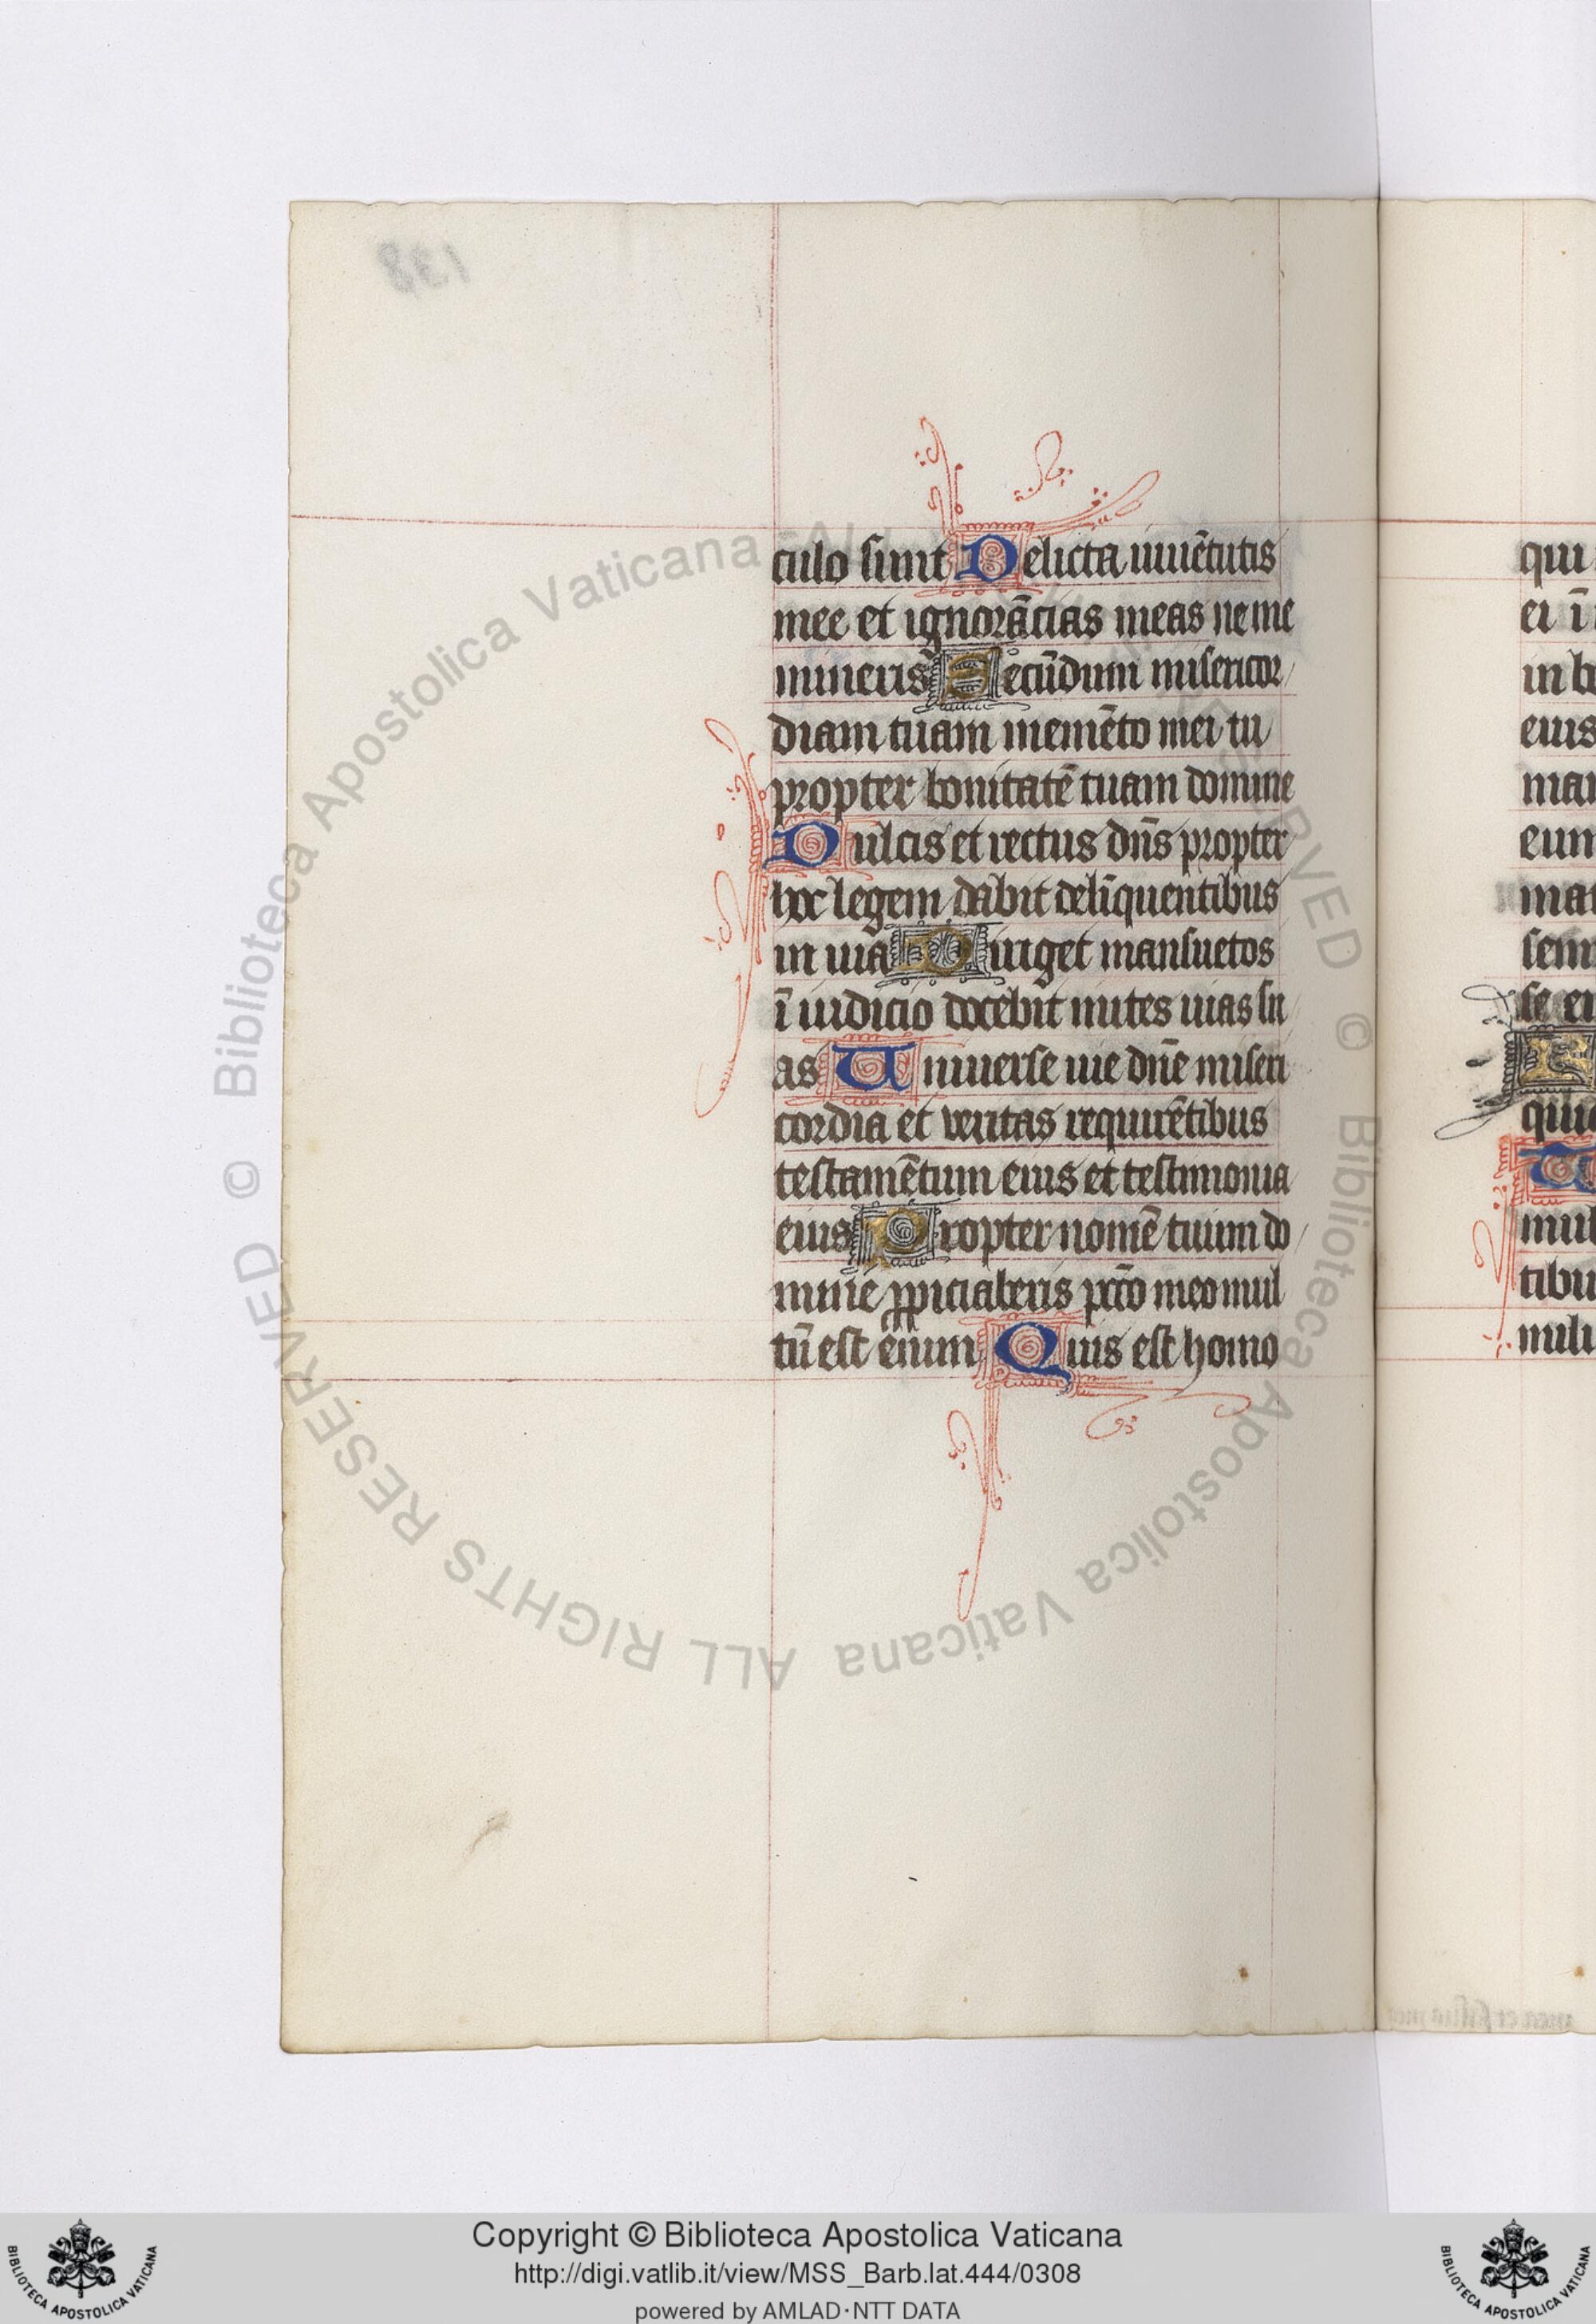 culo sunt Delicta iuuētutis
mee et ignorācias meas ne me
mineris Secūdum misericor
diam tuam memēto mei tu
propter bonitatē tuam domine
Dulcis et rectus dn̄s propter
hoc legem dabit delīquentibus
in uia Diriget mansuetos
ī iudicio docebit mites uias su
as Uniuerse uie dn̄e miseri
cordia et veritas requirētibus
testamētum eius et testimonia
eius Propter nomē tuum do
mine ꝓpiciaberis pccō meo mul
tū est enim Quis est homo
qui
ei ī
in b
eius
mat
sem
se ei
qui
mul
tibu
mili
138
© Biblioteca Apostolica Vaticana ALL RIGHTS RESERVED © Biblioteca Apostolica Vaticana ALL RIGHTS RESERVED
Copyright © Biblioteca Apostolica Vaticana
http://digi.vatlib.it/view/MSS_Barb.lat.444/0308
powered by AMLAD·NTT DATA
BIBLIOTECA APOSTOLICA VATICANA
BIBLIOTECA APOSTOLICA VATICANA